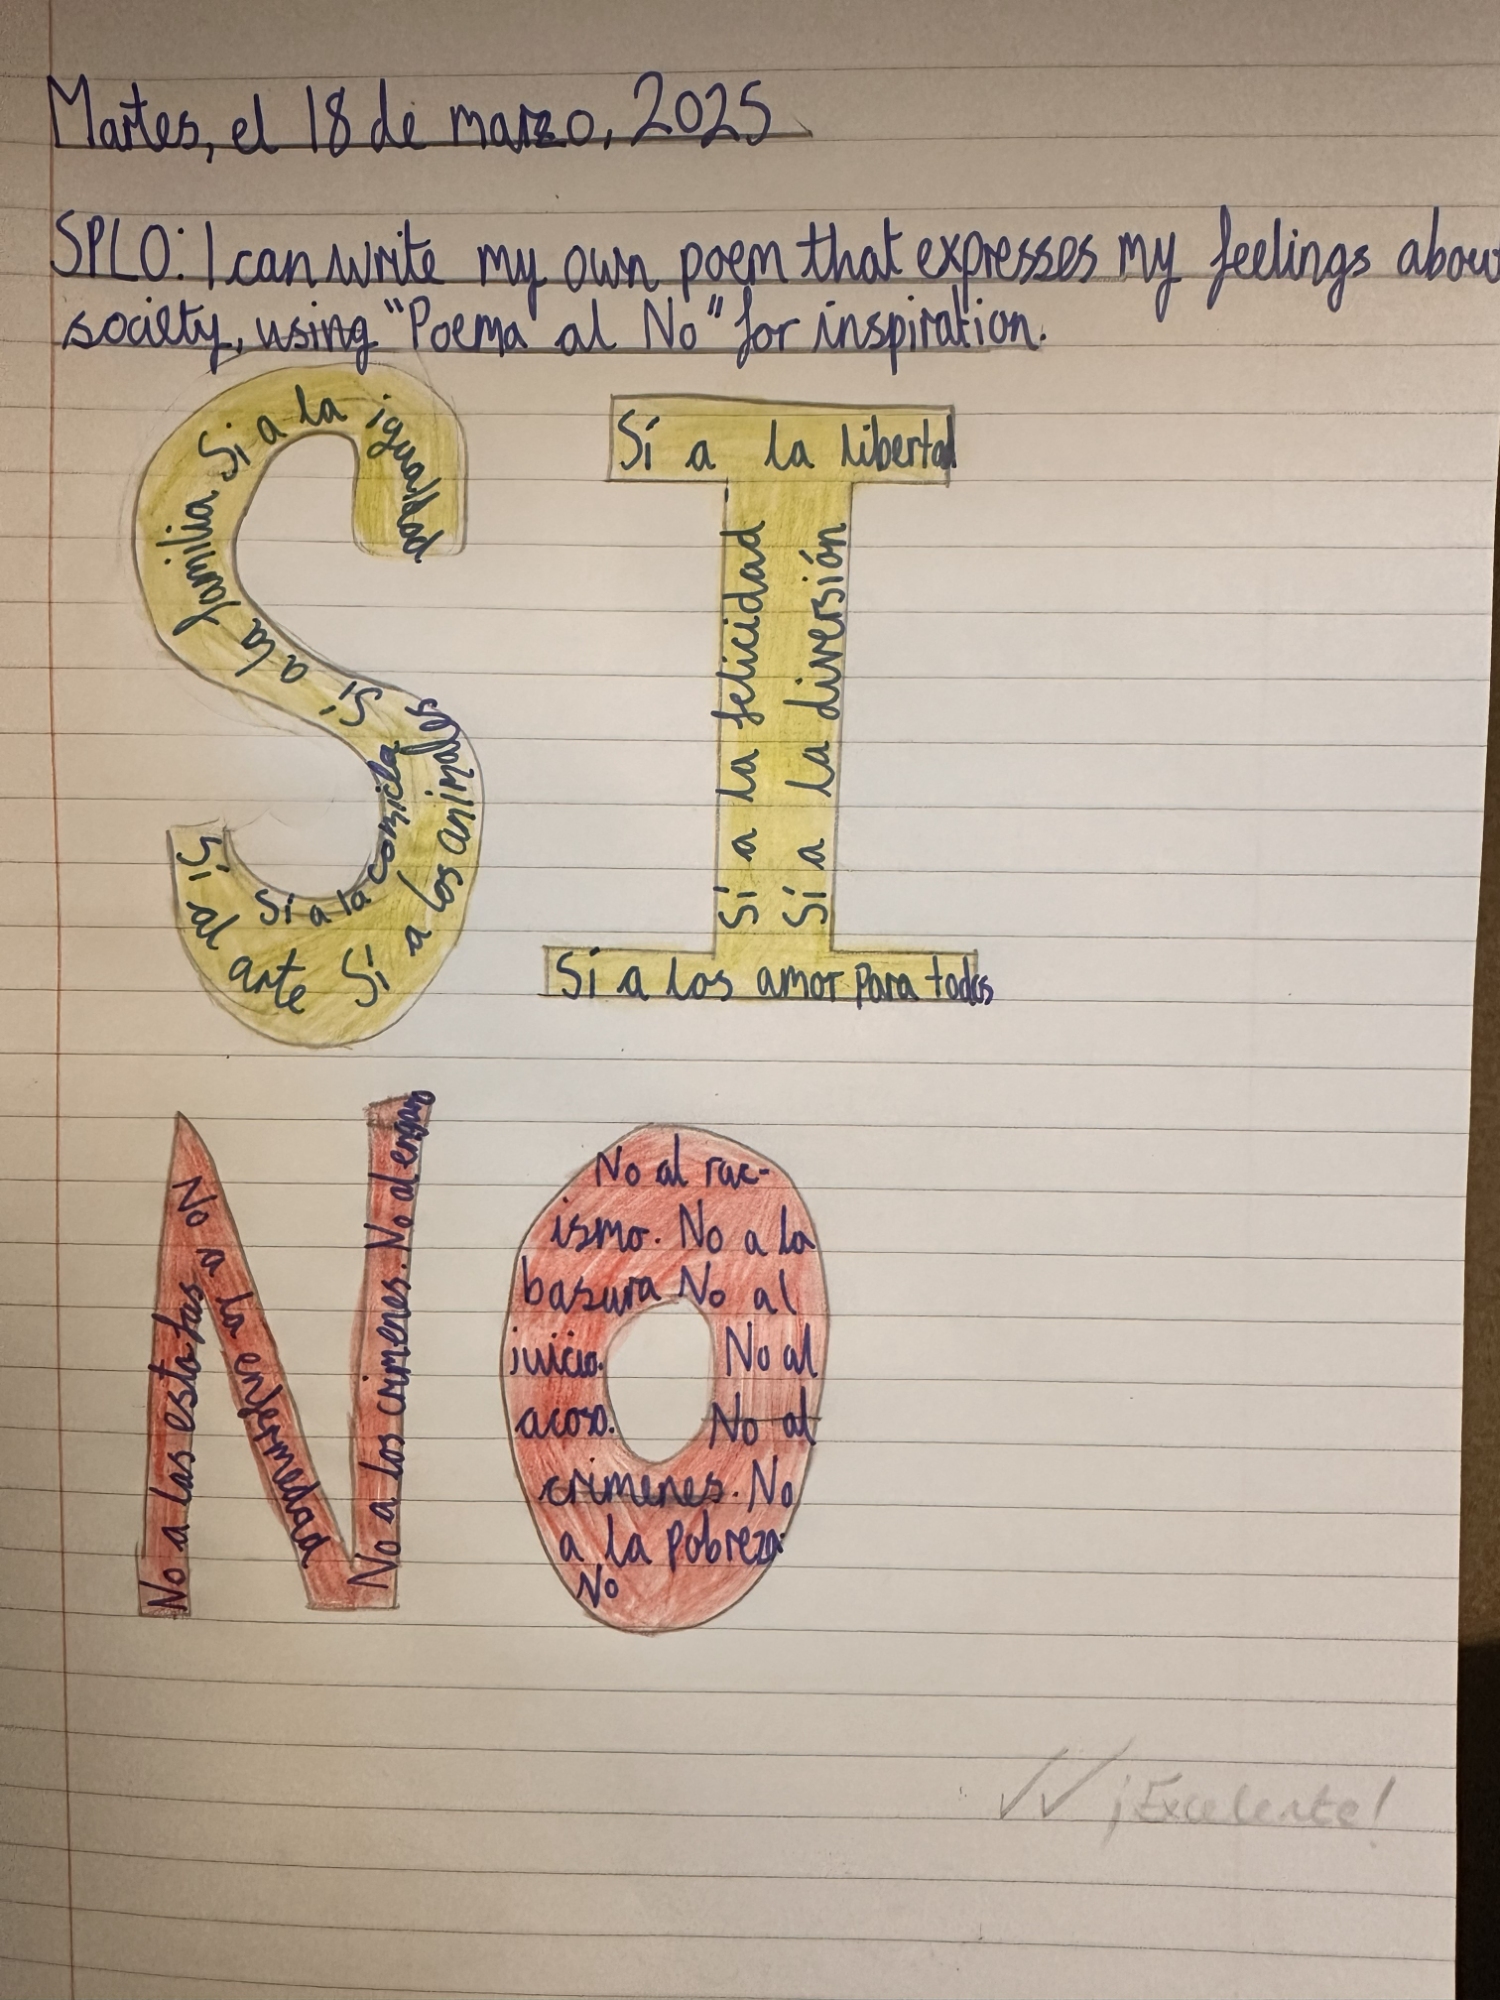 Martes, el 18 de marzo, 2025
SPLO: I can write my own poem that expresses my feelings abou
society, using "Poema al No" for inspiration.
Si a la igualdad
Sí a la familia
Sí a los animales
Sí a la comida
Sí al arte
Sí a la libertad
Sí a la felicidad
Sí a la diversión
Sí a los amor para todos
No a las estafas
No a la enfermedad
No a los crimenes. No al engaño
No al rac-
ismo. No a la
basura No al
juicio. No al
acoso. No al
crimenes. No
a la pobreza.
No
¡Excelente!